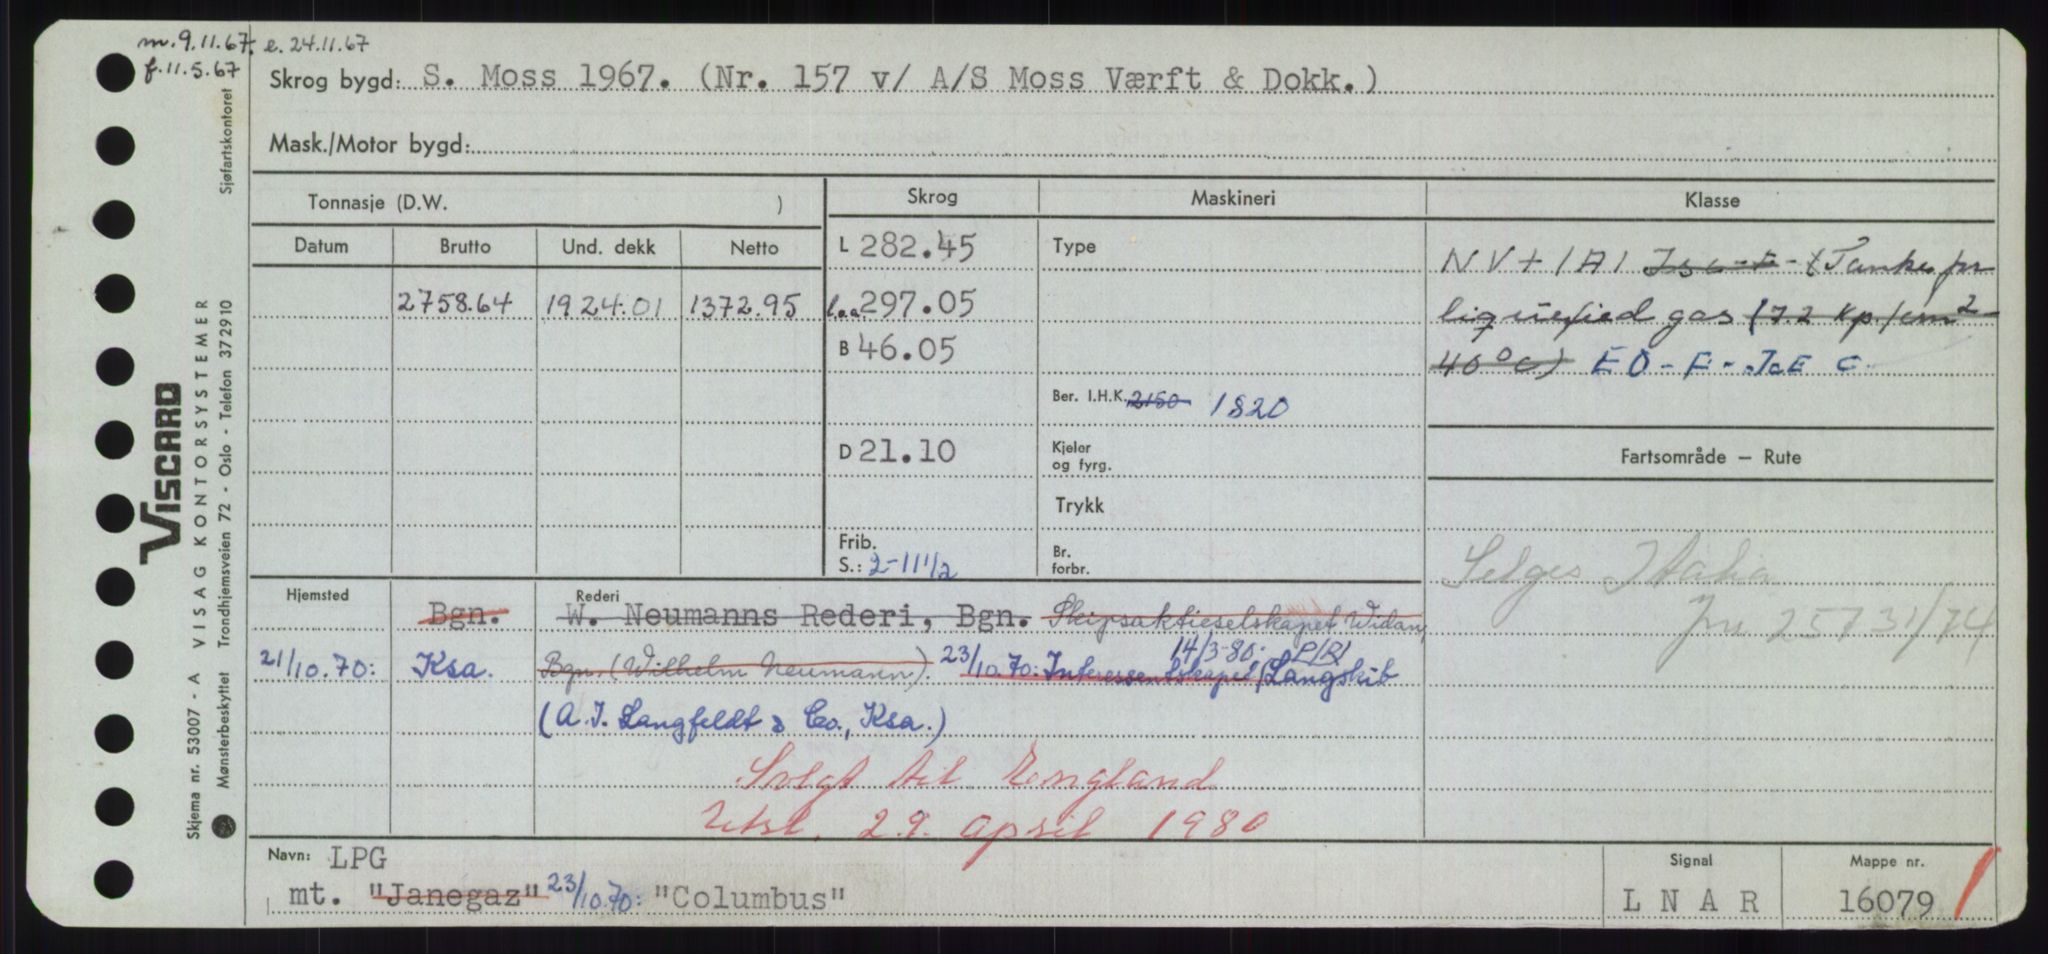 m. 9.11.67. e. 24.11.67
f. 11.5.67
Skrog bygd: S. Moss 1967. (Nr. 157 v/ A/S Moss Værft & Dokk.)
Mask./Motor bygd:
Tonnasje (D.W. )
Skrog
Maskineri
Klasse
Datum Brutto Und. dekk Netto
2758.64 1924.01 1372.95
L 282.45
l.o.a. 297.05
B 46.05
D 21.10
Frib.
S.: 2-11 1/2
Type
Ber. I.H.K. 2150 1820
Kjeler
og fyrg.
Trykk
Br.
forbr.
NV+1A1 Isc-F- (Tanks for
liquefied gas (7.2 kp/cm2
40°C) EO-F-IcE C
Fartsområde — Rute
Selges Italia
Jnr 25731/74
Hjemsted
Rederi
Bgn. W. Neumanns Rederi, Bgn. Skipsaktieselskapet Widan,
14/3-80: P/R
21/10.70: Ksa. Bgn. (Wilhelm Neumann). 23/10.70: Interessentskapet Langskib
(A. I. Langfeldt & Co., Ksa.)
Solgt til England
Utsl. 29. april 1980
Navn: LPG
mt. "Janegaz" 23/10.70: "Columbus"
Signal
L N A R
Mappe nr.
16079
VISCARD
VISAG KONTORSYSTEMER
Skjema nr. 53007 - A
Mønsterbeskyttet
Trondhjemsveien 72 - Oslo - Telefon 372910
Sjøfartskontoret